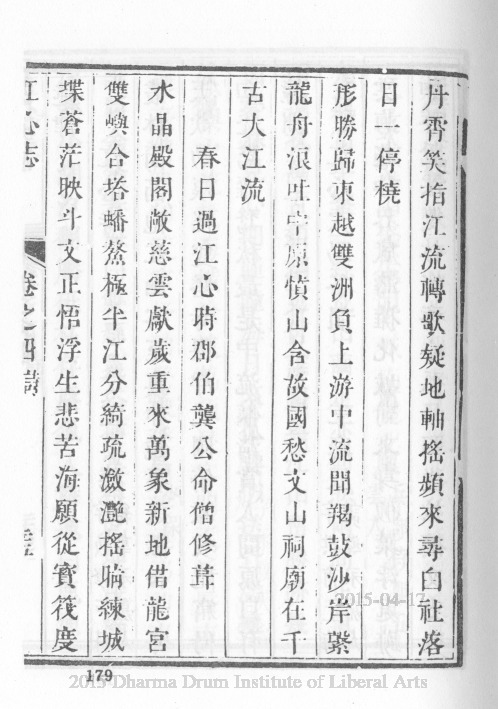 丹霄笑指江流轉歌疑地軸搖頻來尋白社落
日一停橈
形勝歸東越雙洲負上游中流聞羯鼓沙岸繫
龍舟浪吐中原憤山含故國愁文山祠廟在千
古大江流
春日過江心時郡伯龔公命僧修葺
水晶殿閣敞慈雲獻歲重來萬象新地借龍宮
雙嶼合塔蟠鰲極半江分綺疏瀲灩搖晴練城
堞蒼茫映斗文正悟浮生悲苦海願從寶筏度
江心志
卷之四
179
2015-04-17
2015 Dharma Drum Institute of Liberal Arts